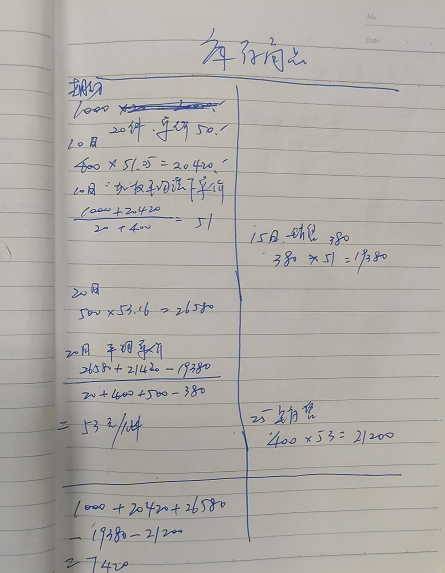 库存商品
期初
1000
20件 单价50
10日
400 × 51.05 = 20420
10日 加权平均法下单价
1000 + 20420
20 + 400
= 51
15日 销售 380
380 × 51 = 19380
20日
500 × 53.16 = 26580
20日 平均单价
26580 + 21420 - 19380
20 + 400 + 500 - 380
= 53元/件
25 销售
400 × 53 = 21200
1000 + 20420 + 26580
- 19380 - 21200
= 7420